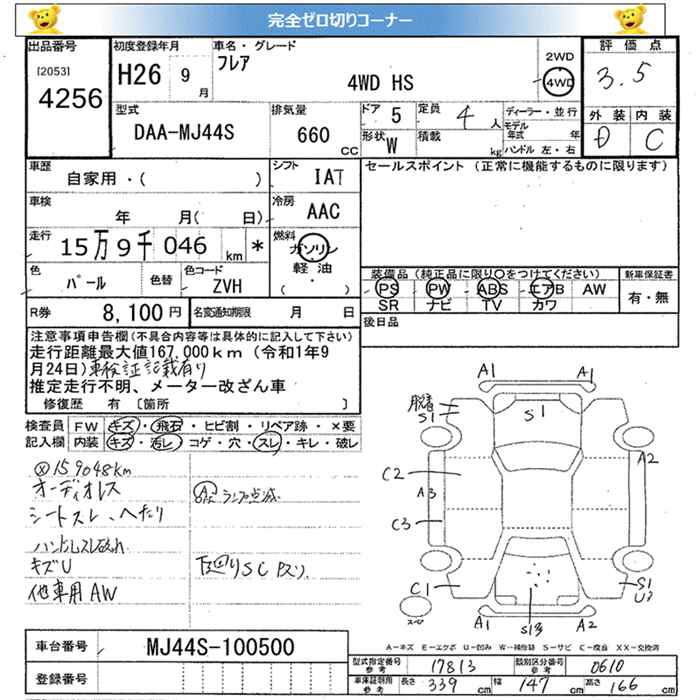 完全ゼロ切りコーナー
出品番号
[2053]
4256
初度登録年月
H26 9月
車名・グレード
フレア
4WD HS
2WD
4WD
評価点
3.5
外装 内装
D C
型式
DAA-MJ44S
排気量
660 CC
ドア 5
形状 W
定員 4 人
積載 kg
ディーラー・並行
モデル年式 年
ハンドル 左・右
車歴
自家用・( )
シフト
IAT
セールスポイント (正常に機能するものに限ります)
車検
年 月( 日)
冷房
AAC
走行
15万9千046 km *
燃料
ガソリン
軽油
( ・ )
色
パール
色替
色コード
ZVH
装備品 (純正品に限り○をつけてください)
PS PW ABS エアB AW
SR ナビ TV カワ
新車保証書
有・無
R券 8,100円
名変通知期限 月 日
後日品
注意事項申告欄(不具合内容等は具体的に記入して下さい)
走行距離最大値167,000km (令和1年9
月24日)車検証記載有り
推定走行不明、メーター改ざん車
修復歴 有 [箇所 ]
検査員記入欄
FW キズ・飛石・ヒビ割・リペア跡・×要
内装 キズ・汚レ・コゲ・穴・スレ・キレ・破レ
159048km
オーディオレス
シートスレ、ヘたり
ランプ点滅
ハンドルスレ
キズU
下回りSC
他車用AW
A1 A1
脱着
S1
S1
C2
A3
C3
A2
C1
S1
U2
スペア
A2 A1
S1
A-キズ E-エクボ U-凹み W-補修跡 S-サビ C-腐食 XX-交換済
車台番号
MJ44S-100500
登録番号
型式指定番号 参考 17813
類別区分番号 参考 0610
車庫証明用 参考 長さ 339 cm 幅 147 cm 高さ 166 cm